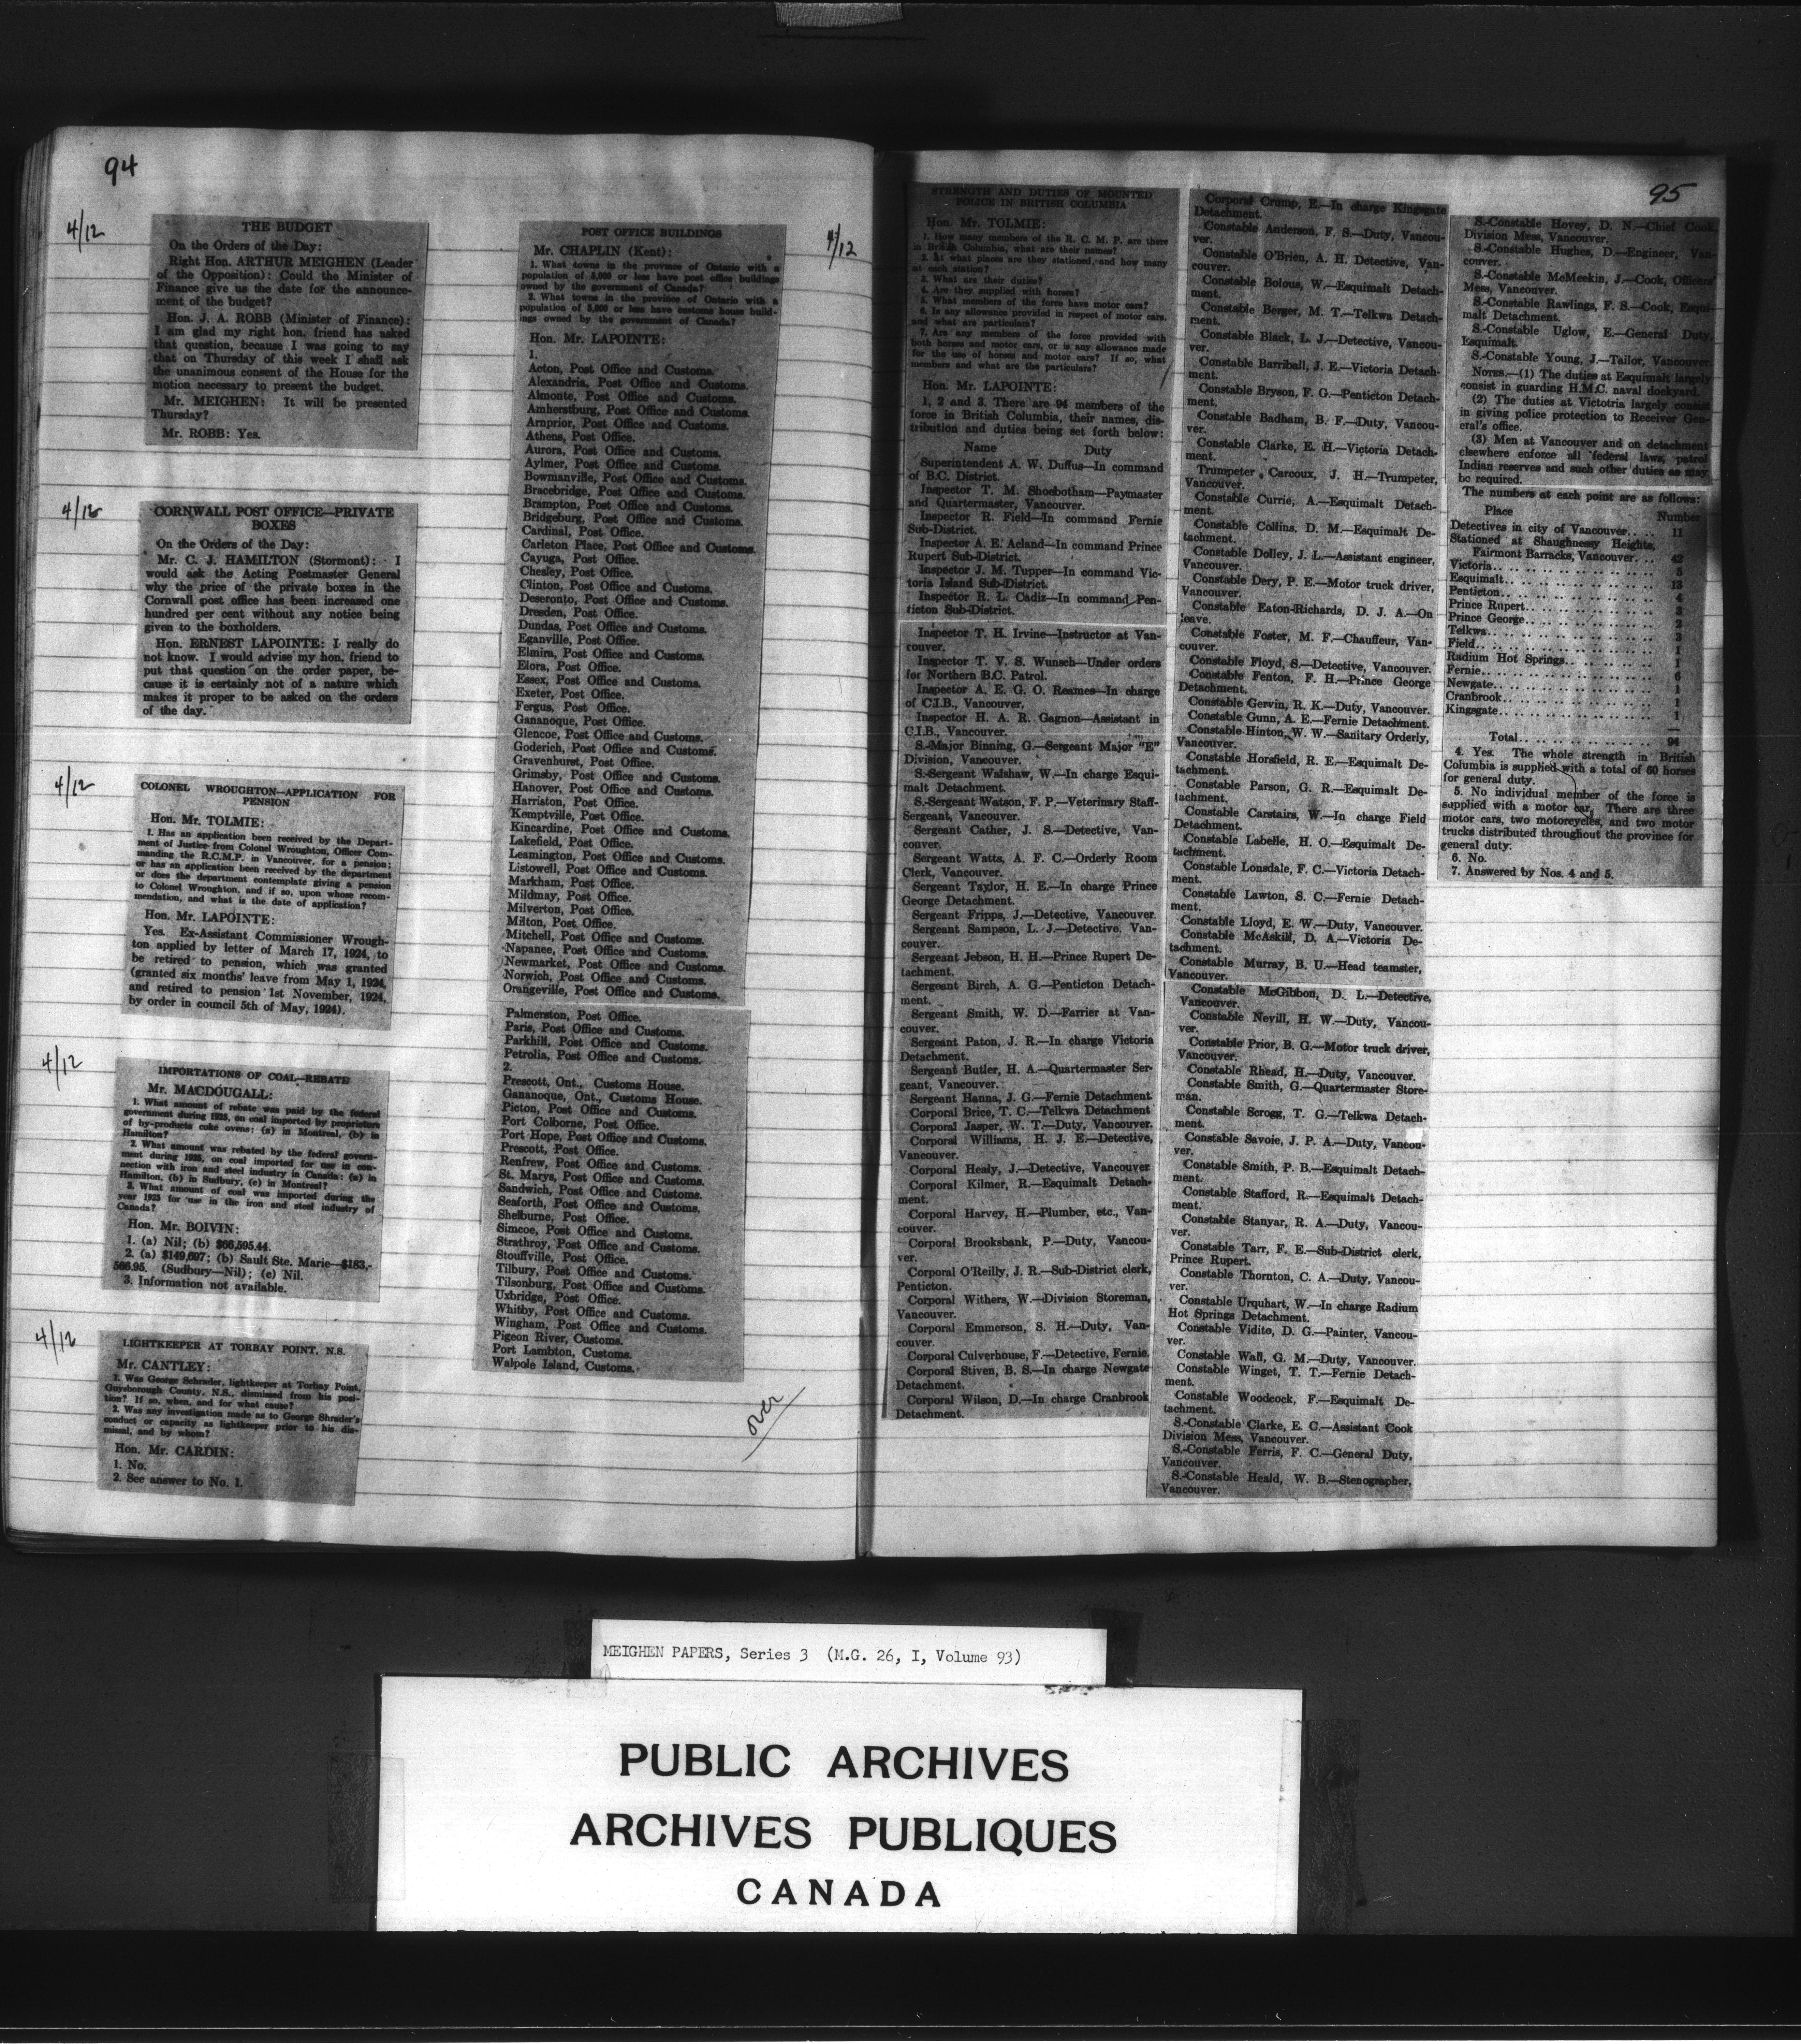 94
4/12
THE BUDGET
On the Orders of the Day:
Right Hon. ARTHUR MEIGHEN (Leader
of the Opposition): Could the Minister of
Finance give us the date for the announce-
ment of the budget?
Hon. J. A. ROBB (Minister of Finance):
I am glad my right hon. friend has asked
that question, because I was going to say
that on Thursday of this week I shall ask
the unanimous consent of the House for the
motion necessary to present the budget.
Mr. MEIGHEN: It will be presented
Thursday?
Mr. ROBB: Yes.
4/12
CORNWALL POST OFFICE—PRIVATE
BOXES
On the Orders of the Day:
Mr. C. J. HAMILTON (Stormont): I
would ask the Acting Postmaster General
why the price of the private boxes in the
Cornwall post office has been increased one
hundred per cent without any notice being
given to the boxholders.
Hon. ERNEST LAPOINTE: I really do
not know. I would advise my hon. friend to
put that question on the order paper, be-
cause it is certainly not of a nature which
makes it proper to be asked on the orders
of the day.
4/12
COLONEL WROUGHTON—APPLICATION FOR
PENSION
Hon. Mr. TOLMIE:
1. Has an application been received by the Depart-
ment of Justice from Colonel Wroughton, Officer Com-
manding the R.C.M.P. in Vancouver, for a pension;
or has an application been received by the department
or does the department contemplate giving a pension
to Colonel Wroughton, and if so, upon whose recom-
mendation, and what is the date of application?
Hon. Mr. LAPOINTE:
Yes. Ex-Assistant Commissioner Wrough-
ton applied by letter of March 17, 1924, to
be retired to pension, which was granted
(granted six months' leave from May 1, 1924,
and retired to pension 1st November, 1924,
by order in council 5th of May, 1924).
4/12
IMPORTATIONS OF COAL—REBATE
Mr. MACDOUGALL:
1. What amount of rebate was paid by the federal
government during 1925, on coal imported by proprietors
of by-products coke ovens: (a) in Montreal, (b) in
Hamilton?
2. What amount was rebated by the federal govern-
ment during 1925, on coal imported for use in con-
nection with iron and steel industry in Canada: (a) in
Hamilton, (b) in Sudbury, (c) in Montreal?
3. What amount of coal was imported during the
year 1925 for use in the iron and steel industry of
Canada?
Hon. Mr. BOIVIN:
1. (a) Nil; (b) $66,595.44.
2. (a) $149,697; (b) Sault Ste. Marie—$183,-
566.95. (Sudbury—Nil); (c) Nil.
3. Information not available.
4/12
LIGHTKEEPER AT TORBAY POINT, N.S.
Mr. CANTLEY:
1. Was George Schrader, lightkeeper at Torbay Point,
Guysborough County, N.S., dismissed from his posi-
tion? If so, when, and for what cause?
2. Was any investigation made as to George Shrader's
conduct or capacity as lightkeeper prior to his dis-
missal, and by whom?
Hon. Mr. CARDIN:
1. No.
2. See answer to No. 1.
POST OFFICE BUILDINGS
Mr. CHAPLIN (Kent):
1. What towns in the province of Ontario with a
population of 5,000 or less have post office buildings
owned by the government of Canada?
2. What towns in the province of Ontario with a
population of 5,000 or less have customs house build-
ings owned by the government of Canada?
Hon. Mr. LAPOINTE:
1.
Acton, Post Office and Customs.
Alexandria, Post Office and Customs.
Almonte, Post Office and Customs.
Amherstburg, Post Office and Customs.
Arnprior, Post Office and Customs.
Athens, Post Office.
Aurora, Post Office and Customs.
Aylmer, Post Office and Customs.
Bowmanville, Post Office and Customs.
Bracebridge, Post Office and Customs.
Brampton, Post Office and Customs.
Bridgeburg, Post Office and Customs.
Cardinal, Post Office.
Carleton Place, Post Office and Customs.
Cayuga, Post Office.
Chesley, Post Office.
Clinton, Post Office and Customs.
Deseronto, Post Office and Customs.
Dresden, Post Office.
Dundas, Post Office and Customs.
Eganville, Post Office.
Elmira, Post Office and Customs.
Elora, Post Office.
Essex, Post Office and Customs.
Exeter, Post Office.
Fergus, Post Office.
Gananoque, Post Office.
Glencoe, Post Office and Customs.
Goderich, Post Office and Customs.
Gravenhurst, Post Office.
Grimsby, Post Office and Customs.
Hanover, Post Office and Customs.
Harriston, Post Office.
Kemptville, Post Office.
Kincardine, Post Office and Customs.
Lakefield, Post Office.
Leamington, Post Office and Customs.
Listowell, Post Office and Customs.
Markham, Post Office.
Mildmay, Post Office.
Milverton, Post Office.
Milton, Post Office.
Mitchell, Post Office and Customs.
Napanee, Post Office and Customs.
Newmarket, Post Office and Customs.
Norwich, Post Office and Customs.
Orangeville, Post Office and Customs.
Palmerston, Post Office.
Paris, Post Office and Customs.
Parkhill, Post Office and Customs.
Petrolia, Post Office and Customs.
2.
Prescott, Ont., Customs House.
Gananoque, Ont., Customs House.
Picton, Post Office and Customs.
Port Colborne, Post Office.
Port Hope, Post Office and Customs.
Prescott, Post Office.
Renfrew, Post Office and Customs.
St. Marys, Post Office and Customs.
Sandwich, Post Office and Customs.
Seaforth, Post Office and Customs.
Shelburne, Post Office.
Simcoe, Post Office and Customs.
Strathroy, Post Office and Customs.
Stouffville, Post Office.
Tilbury, Post Office and Customs.
Tilsonburg, Post Office and Customs.
Uxbridge, Post Office.
Whitby, Post Office and Customs.
Wingham, Post Office and Customs.
Pigeon River, Customs.
Port Lambton, Customs.
Walpole Island, Customs.
over
4/12
95
STRENGTH AND DUTIES OF MOUNTED
POLICE IN BRITISH COLUMBIA
Hon. Mr. TOLMIE:
1. How many members of the R. C. M. P. are there
in British Columbia, what are their names?
2. At what places are they stationed, and how many
at each station?
3. What are their duties?
4. Are they supplied with horses?
5. What members of the force have motor cars?
6. Is any allowance provided in respect of motor cars,
and what are particulars?
7. Are any members of the force provided with
both horses and motor cars, or is any allowance made
for the use of horses and motor cars? If so, what
members and what are the particulars?
Hon. Mr. LAPOINTE:
1, 2 and 3. There are 94 members of the
force in British Columbia, their names, dis-
tribution and duties being set forth below:
Name Duty
Superintendent A. W. Duffus—In command
of B.C. District.
Inspector T. M. Shoebotham—Paymaster
and Quartermaster, Vancouver.
Inspector R. Field—In command Fernie
Sub-District.
Inspector A. E. Acland—In command Prince
Rupert Sub-District.
Inspector J. M. Tupper—In command Vic-
toria Island Sub-District.
Inspector R. L. Cadiz—In command Pen-
ticton Sub-District.
Inspector T. H. Irvine—Instructor at Van-
couver.
Inspector T. V. S. Wunsch—Under orders
for Northern B.C. Patrol.
Inspector A. E. G. O. Reames—In charge
of C.I.B., Vancouver.
Inspector H. A. R. Gagnon—Assistant in
C.I.B., Vancouver.
S.-Major Binning, G.—Sergeant Major "E"
Division, Vancouver.
S.-Sergeant Walshaw, W.—In charge Esqui-
malt Detachment.
S.-Sergeant Watson, F. P.—Veterinary Staff-
Sergeant, Vancouver.
Sergeant Cather, J. S.—Detective, Van-
couver.
Sergeant Watts, A. F. C.—Orderly Room
Clerk, Vancouver.
Sergeant Taylor, H. E.—In charge Prince
George Detachment.
Sergeant Fripps, J.—Detective, Vancouver.
Sergeant Sampson, L. J.—Detective, Van-
couver.
Sergeant Jebson, H. H.—Prince Rupert De-
tachment.
Sergeant Birch, A. G.—Penticton Detach-
ment.
Sergeant Smith, W. D.—Farrier at Van-
couver.
Sergeant Paton, J. R.—In charge Victoria
Detachment.
Sergeant Butler, H. A.—Quartermaster Ser-
geant, Vancouver.
Sergeant Hanna, J. G.—Fernie Detachment.
Corporal Brice, T. C.—Telkwa Detachment
Corporal Jasper, W. T.—Duty, Vancouver.
Corporal Williams, H. J. E.—Detective,
Vancouver.
Corporal Healy, J.—Detective, Vancouver
Corporal Kilmer, R.—Esquimalt Detach-
ment.
Corporal Harvey, H.—Plumber, etc., Van-
couver.
Corporal Brooksbank, P.—Duty, Vancou-
ver.
Corporal O'Reilly, J. R.—Sub-District clerk,
Penticton.
Corporal Withers, W.—Division Storeman,
Vancouver.
Corporal Emmerson, S. H.—Duty, Van-
couver.
Corporal Culverhouse, F.—Detective, Fernie.
Corporal Stiven, B. S.—In charge Newgate
Detachment.
Corporal Wilson, D.—In charge Cranbrook
Detachment.
Corporal Crump, E.—In charge Kingsgate
Detachment.
Constable Anderson, F. S.—Duty, Vancou-
ver.
Constable O'Brien, A. H. Detective, Van-
couver.
Constable Bolous, W.—Esquimalt Detach-
ment.
Constable Berger, M. T.—Telkwa Detach-
ment.
Constable Black, L. J.—Detective, Vancou-
ver.
Constable Barriball, J. E.—Victoria Detach-
ment.
Constable Bryson, F. G.—Penticton Detach-
ment.
Constable Badham, B. F.—Duty, Vancou-
ver.
Constable Clarke, E. H.—Victoria Detach-
ment.
Trumpeter Carcoux, J. H.—Trumpeter,
Vancouver.
Constable Currie, A.—Esquimalt Detach-
ment.
Constable Collins, D. M.—Esquimalt De-
tachment.
Constable Dolley, J. L.—Assistant engineer,
Vancouver.
Constable Dery, P. E.—Motor truck driver,
Vancouver.
Constable Eaton-Richards, D. J. A.—On
leave.
Constable Foster, M. F.—Chauffeur, Van-
couver.
Constable Floyd, S.—Detective, Vancouver.
Constable Fenton, F. H.—Prince George
Detachment.
Constable Gervin, R. K.—Duty, Vancouver.
Constable Gunn, A. E.—Fernie Detachment.
Constable Hinton, W. W.—Sanitary Orderly,
Vancouver.
Constable Horsfield, R. E.—Esquimalt De-
tachment.
Constable Parson, G. R.—Esquimalt De-
tachment.
Constable Carstairs, W.—In charge Field
Detachment.
Constable Labelle, H. O.—Esquimalt De-
tachment.
Constable Lonsdale, F. C.—Victoria Detach-
ment.
Constable Lawton, S. C.—Fernie Detach-
ment.
Constable Lloyd, E. W.—Duty, Vancouver.
Constable McAskill, D. A.—Victoria De-
tachment.
Constable Murray, B. U.—Head teamster,
Vancouver.
Constable McGibbon, D. L.—Detective,
Vancouver.
Constable Nevill, H. W.—Duty, Vancou-
ver.
Constable Prior, B. G.—Motor truck driver,
Vancouver.
Constable Rhead, H.—Duty, Vancouver.
Constable Smith, G.—Quartermaster Store-
man.
Constable Scrogg, T. G.—Telkwa Detach-
ment.
Constable Savoie, J. P. A.—Duty, Vancou-
ver.
Constable Smith, P. B.—Esquimalt Detach-
ment.
Constable Stafford, R.—Esquimalt Detach-
ment.
Constable Stanyar, R. A.—Duty, Vancou-
ver.
Constable Tarr, F. E.—Sub-District clerk,
Prince Rupert.
Constable Thornton, C. A.—Duty, Vancou-
ver.
Constable Urquhart, W.—In charge Radium
Hot Springs Detachment.
Constable Vidito, D. G.—Painter, Vancou-
ver.
Constable Wall, G. M.—Duty, Vancouver.
Constable Winget, T. T.—Fernie Detach-
ment.
Constable Woodcock, F.—Esquimalt De-
tachment.
S.-Constable Clarke, E. C.—Assistant Cook
Division Mess, Vancouver.
S.-Constable Ferris, F. C.—General Duty,
Vancouver.
S.-Constable Heald, W. B.—Stenographer,
Vancouver.
S.-Constable Hovey, D. N.—Chief Cook,
Division Mess, Vancouver.
S.-Constable Hughes, D.—Engineer, Van-
couver.
S.-Constable McMeekin, J.—Cook, Officers'
Mess, Vancouver.
S.-Constable Rawlings, F. S.—Cook, Esqui-
malt Detachment.
S.-Constable Uglow, E.—General Duty,
Esquimalt.
S.-Constable Young, J.—Tailor, Vancouver.
NOTES.—(1) The duties at Esquimalt largely
consist in guarding H.M.C. naval dockyard.
(2) The duties at Victotria largely consist
in giving police protection to Receiver Gen-
eral's office.
(3) Men at Vancouver and on detachment
elsewhere enforce all federal laws, patrol
Indian reserves and such other duties as may
be required.
The numbers at each point are as follows:
Place Number
Detectives in city of Vancouver.. .. 11
Stationed at Shaughnessy Heights,
Fairmont Barracks, Vancouver. .. 42
Victoria.. .. .. .. 5
Esquimalt.. .. .. .. 13
Penticton.. .. .. .. 4
Prince Rupert.. .. .. .. 3
Prince George.. .. .. .. 2
Telkwa.. .. .. .. 3
Field.. .. .. .. 1
Radium Hot Springs.. .. .. 1
Fernie.. .. .. .. 6
Newgate.. .. .. .. 1
Cranbrook.. .. .. .. 1
Kingsgate.. .. .. .. 1
Total.. .. .. .. 94
4. Yes. The whole strength in British
Columbia is supplied with a total of 60 horses
for general duty.
5. No individual member of the force is
supplied with a motor car. There are three
motor cars, two motorcycles, and two motor
trucks distributed throughout the province for
general duty.
6. No.
7. Answered by Nos. 4 and 5.
MEIGHEN PAPERS, Series 3 (M.G. 26, I, Volume 93)
PUBLIC ARCHIVES
ARCHIVES PUBLIQUES
CANADA